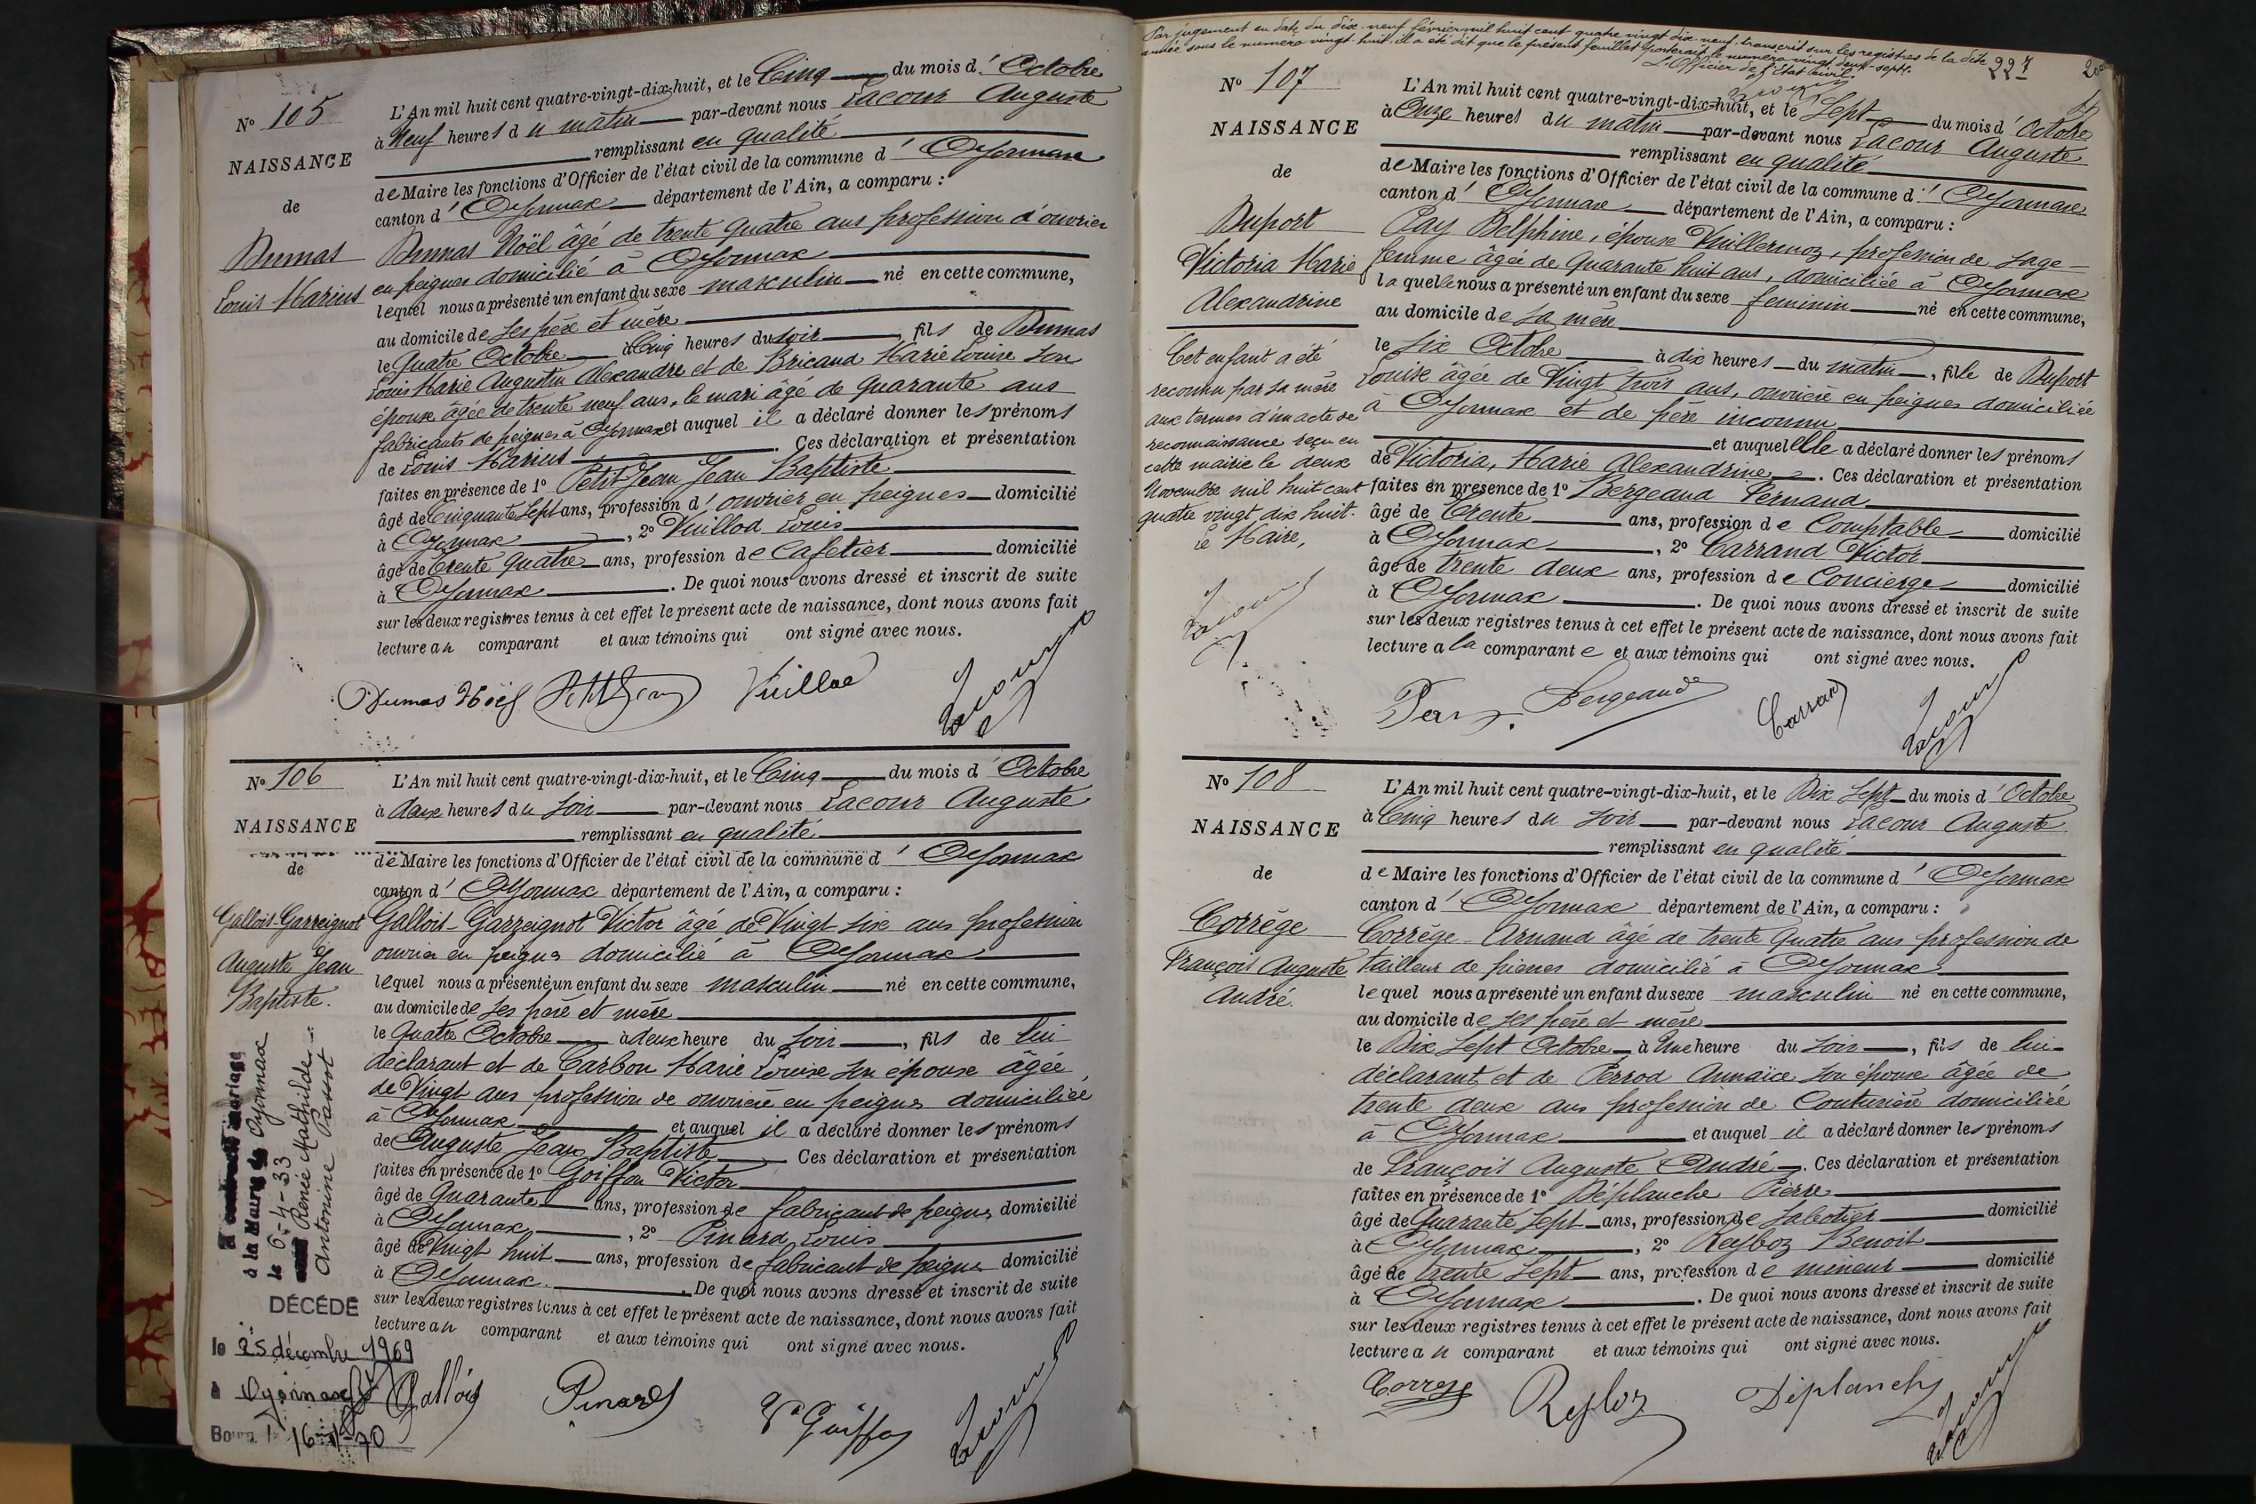 N° 105
NAISSANCE
de
Dumas
Louis Marius
L'An mil huit cent quatre-vingt-dix-huit, et le Cinq du mois d' Octobre
à Neuf heures du matin par-devant nous Lacour Auguste
remplissant en qualité
de Maire les fonctions d'Officier de l'état civil de la commune d' Oyonnax
canton d' Oyonnax département de l'Ain, a comparu :
Dumas Noël âgé de trente quatre ans profession d'ouvrier
en peignes domicilié à Oyonnax
lequel nous a présenté un enfant du sexe masculin né en cette commune,
au domicile de ses père et mère
le Quatre Octobre à Cinq heures du soir fils de Dumas
Louis Marie Augustin Alexandre et de Bricaud Marie Louise son
épouse âgée de trente neuf ans, le mari âgé de quarante ans
fabricants de peignes à Oyonnax et auquel il a déclaré donner les prénoms
de Louis Marius . Ces déclaration et présentation
faites en présence de 1° Petit Jean Jean Baptiste
âgé de Cinquante sept ans, profession d' ouvrier en peignes domicilié
à Oyonnax , 2° Vuillod Louis
âgé de Trente quatre ans, profession de Cafetier domicilié
à Oyonnax . De quoi nous avons dressé et inscrit de suite
sur les deux registres tenus à cet effet le présent acte de naissance, dont nous avons fait
lecture au comparant et aux témoins qui ont signé avec nous.
Dumas Noël Vuillod Lacour
N° 106
NAISSANCE
de
Gallois-Garreignot
Auguste Jean
Baptiste.
à la Mairie de Oyonnax
le 6-4-33
Renée Mathilde
Antonine Passot
DÉCÉDÉ
le 25 décembre 1969
à Oyonnax
L'An mil huit cent quatre-vingt-dix-huit, et le Cinq du mois d' Octobre
à deux heures du soir par-devant nous Lacour Auguste
remplissant en qualité
de Maire les fonctions d'Officier de l'état civil de la commune d' Oyonnax
canton d' Oyonnax département de l'Ain, a comparu :
Gallois-Garreignot Victor âgé de Vingt six ans profession
ouvrier en peignes domicilié à Oyonnax
lequel nous a présenté un enfant du sexe masculin né en cette commune,
au domicile de ses père et mère
le Quatre Octobre à deux heure du soir , fils de lui
déclarant et de Carbon Marie Louise son épouse âgée
de Vingt ans profession de ouvrière en peignes domiciliée
à Oyonnax et auquel il a déclaré donner les prénoms
de Auguste Jean Baptiste Ces déclaration et présentation
faites en présence de 1° Goiffon Victor
âgé de Quarante ans, profession de fabricant de peignes domicilié
à Oyonnax , 2° Pinard Louis
âgé de Vingt huit ans, profession de fabricant de peignes domicilié
à Oyonnax . De quoi nous avons dressé et inscrit de suite
sur les deux registres tenus à cet effet le présent acte de naissance, dont nous avons fait
lecture au comparant et aux témoins qui ont signé avec nous.
Gallois Pinard Goiffon Lacour
Par jugement en date du dix-neuf février mil huit cent quatre vingt dix neuf, transcrit sur les registres de la dite
année sous le numéro vingt-huit, il a été dit que le présent feuillet porterait le numéro vingt deux-sept.
L'Officier de l'état civil
227
N° 107
NAISSANCE
de
Duport
Victoria Marie
Alexandrine
Cet enfant a été
reconnu par sa mère
aux termes d'un acte de
reconnaissance reçu en
cette mairie le deux
Novembre mil huit cent
quatre vingt dix huit.
Le Maire,
Lacour
L'An mil huit cent quatre-vingt-dix-huit, et le Sept du mois d' Octobre
à Onze heures du matin par-devant nous Lacour Auguste
remplissant en qualité
de Maire les fonctions d'Officier de l'état civil de la commune d' Oyonnax
canton d' Oyonnax département de l'Ain, a comparu :
Pay Delphine, épouse Vuillermoz, profession de sage-
femme âgée de Quarante huit ans, domiciliée à Oyonnax
laquelle nous a présenté un enfant du sexe feminin né en cette commune,
au domicile de sa mère
le six Octobre à dix heures du matin , fille de Duport
Louise âgée de Vingt trois ans, ouvrière en peignes domiciliée
à Oyonnax et de père inconnu
et auquel elle a déclaré donner les prénoms
de Victoria, Marie Alexandrine . Ces déclaration et présentation
faites en présence de 1° Bergeaud Fernand
âgé de Trente ans, profession de Comptable domicilié
à Oyonnax , 2° Carrand Victor
âgé de trente deux ans, profession de Concierge domicilié
à Oyonnax . De quoi nous avons dressé et inscrit de suite
sur les deux registres tenus à cet effet le présent acte de naissance, dont nous avons fait
lecture a la comparante et aux témoins qui ont signé avec nous.
Bergeaud Carrand Lacour
N° 108
NAISSANCE
de
Corrège
François Auguste
André.
L'An mil huit cent quatre-vingt-dix-huit, et le Dix Sept du mois d' Octobre
à Cinq heures du soir par-devant nous Lacour Auguste
remplissant en qualité
de Maire les fonctions d'Officier de l'état civil de la commune d' Oyonnax
canton d' Oyonnax département de l'Ain, a comparu :
Corrège Arnaud âgé de trente quatre ans profession de
tailleur de pierres domicilié à Oyonnax
lequel nous a présenté un enfant du sexe masculin né en cette commune,
au domicile de ses père et mère
le Dix Sept Octobre à Une heure du soir , fils de lui-
déclarant et de Perrod Annaïce son épouse âgée de
trente deux ans profession de Couturière domiciliée
à Oyonnax et auquel il a déclaré donner les prénoms
de François Auguste André . Ces déclaration et présentation
faites en présence de 1° Déplanche Pierre
âgé de Quarante Sept ans, profession de sabotier domicilié
à Oyonnax , 2° Reyboz Benoit
âgé de trente sept ans, profession de mineur domicilié
à Oyonnax . De quoi nous avons dressé et inscrit de suite
sur les deux registres tenus à cet effet le présent acte de naissance, dont nous avons fait
lecture au comparant et aux témoins qui ont signé avec nous.
Corrège Reyboz Déplanche Lacour